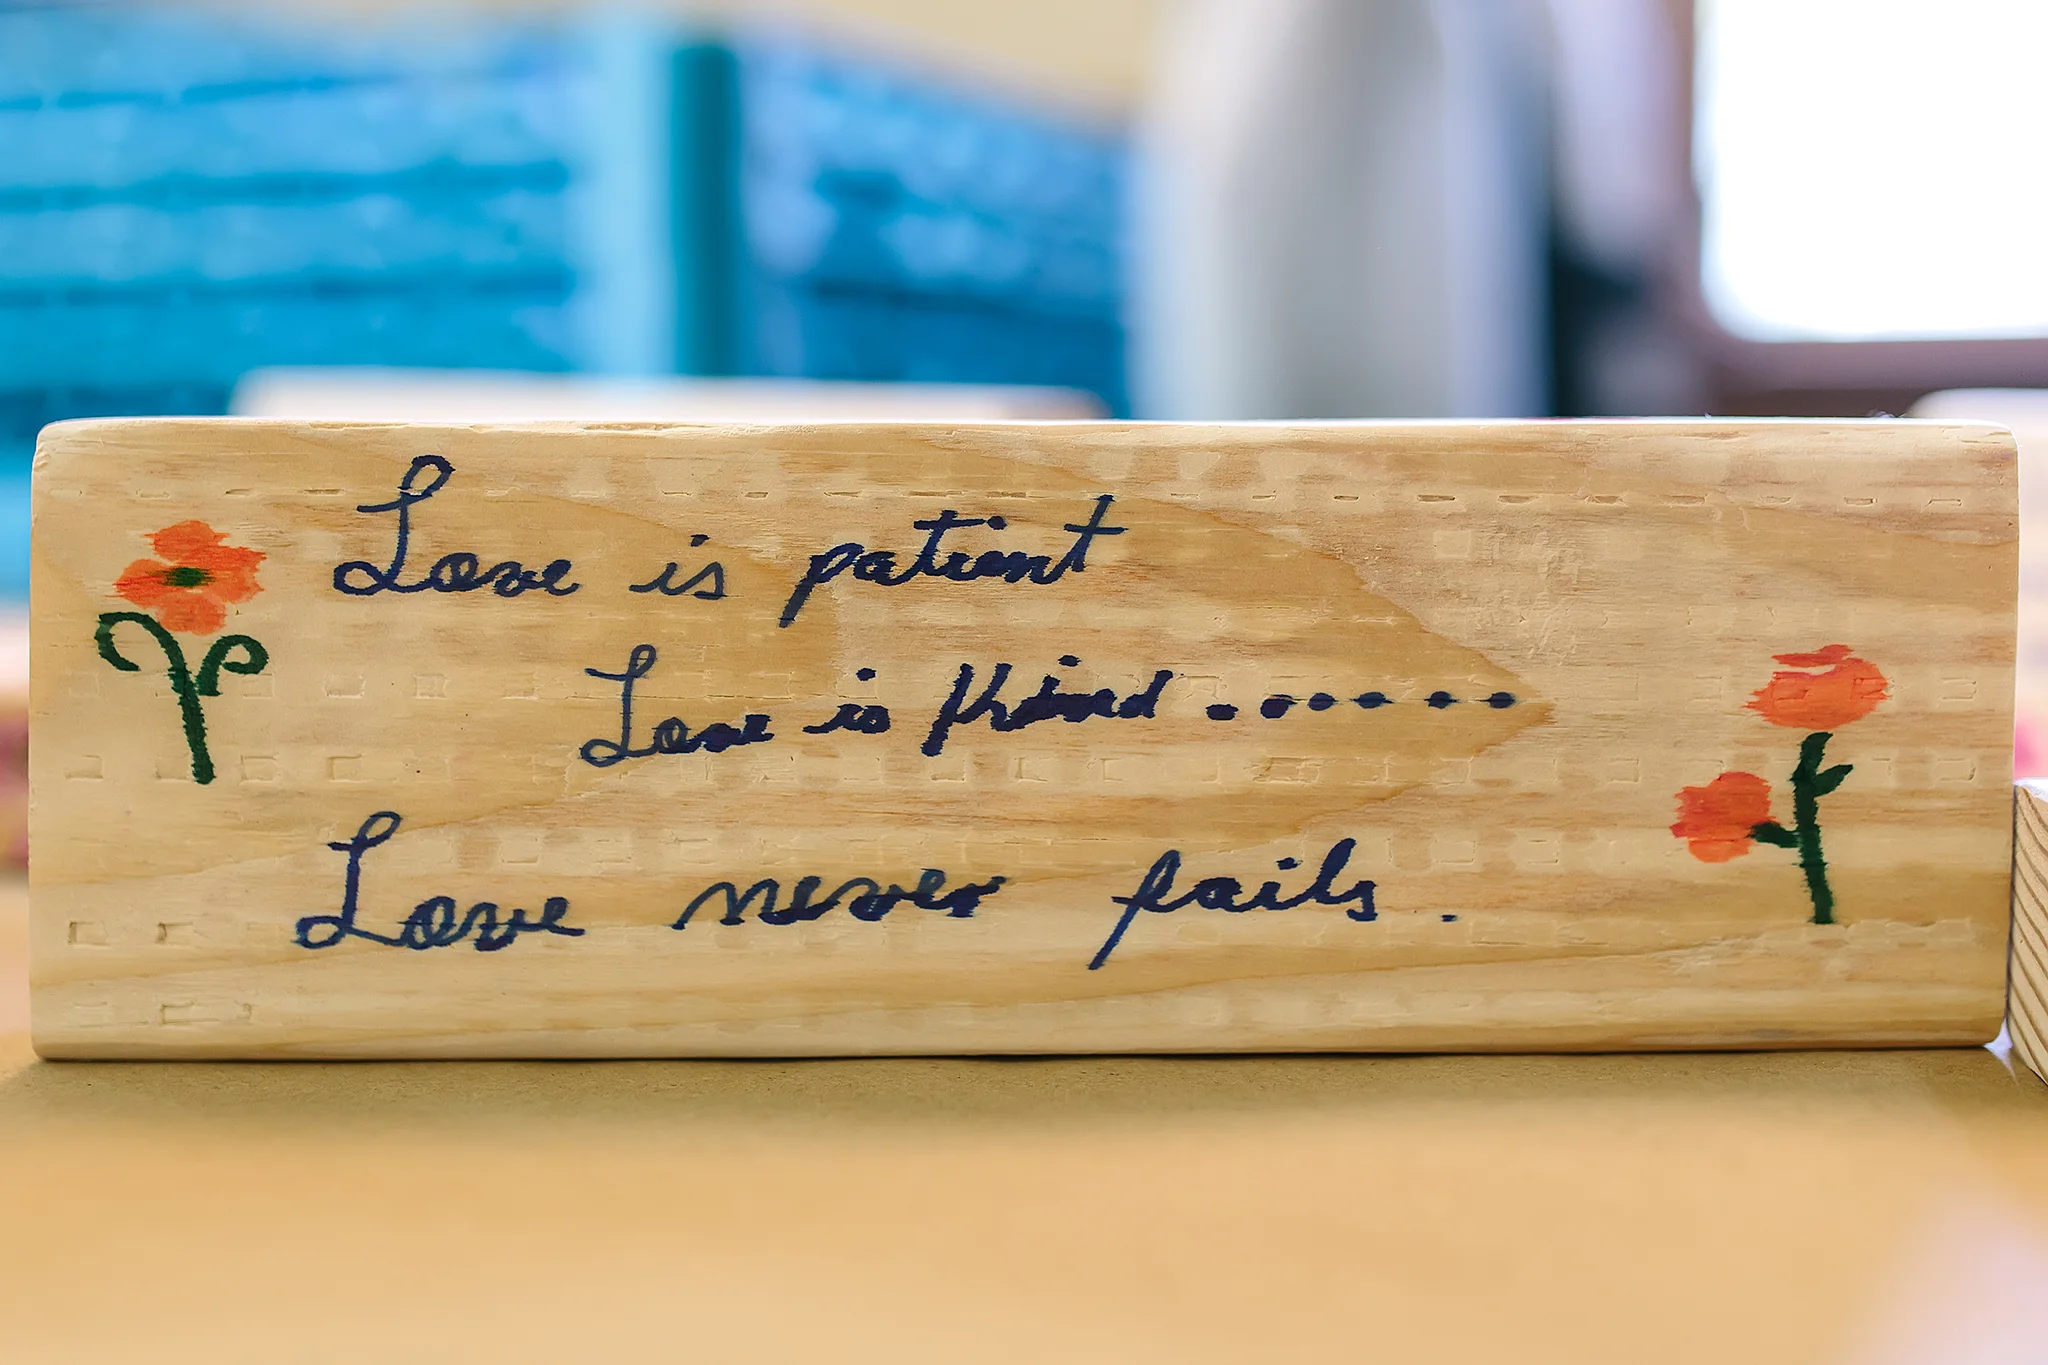 Love is patient
Love is kind.......
Love never fails.